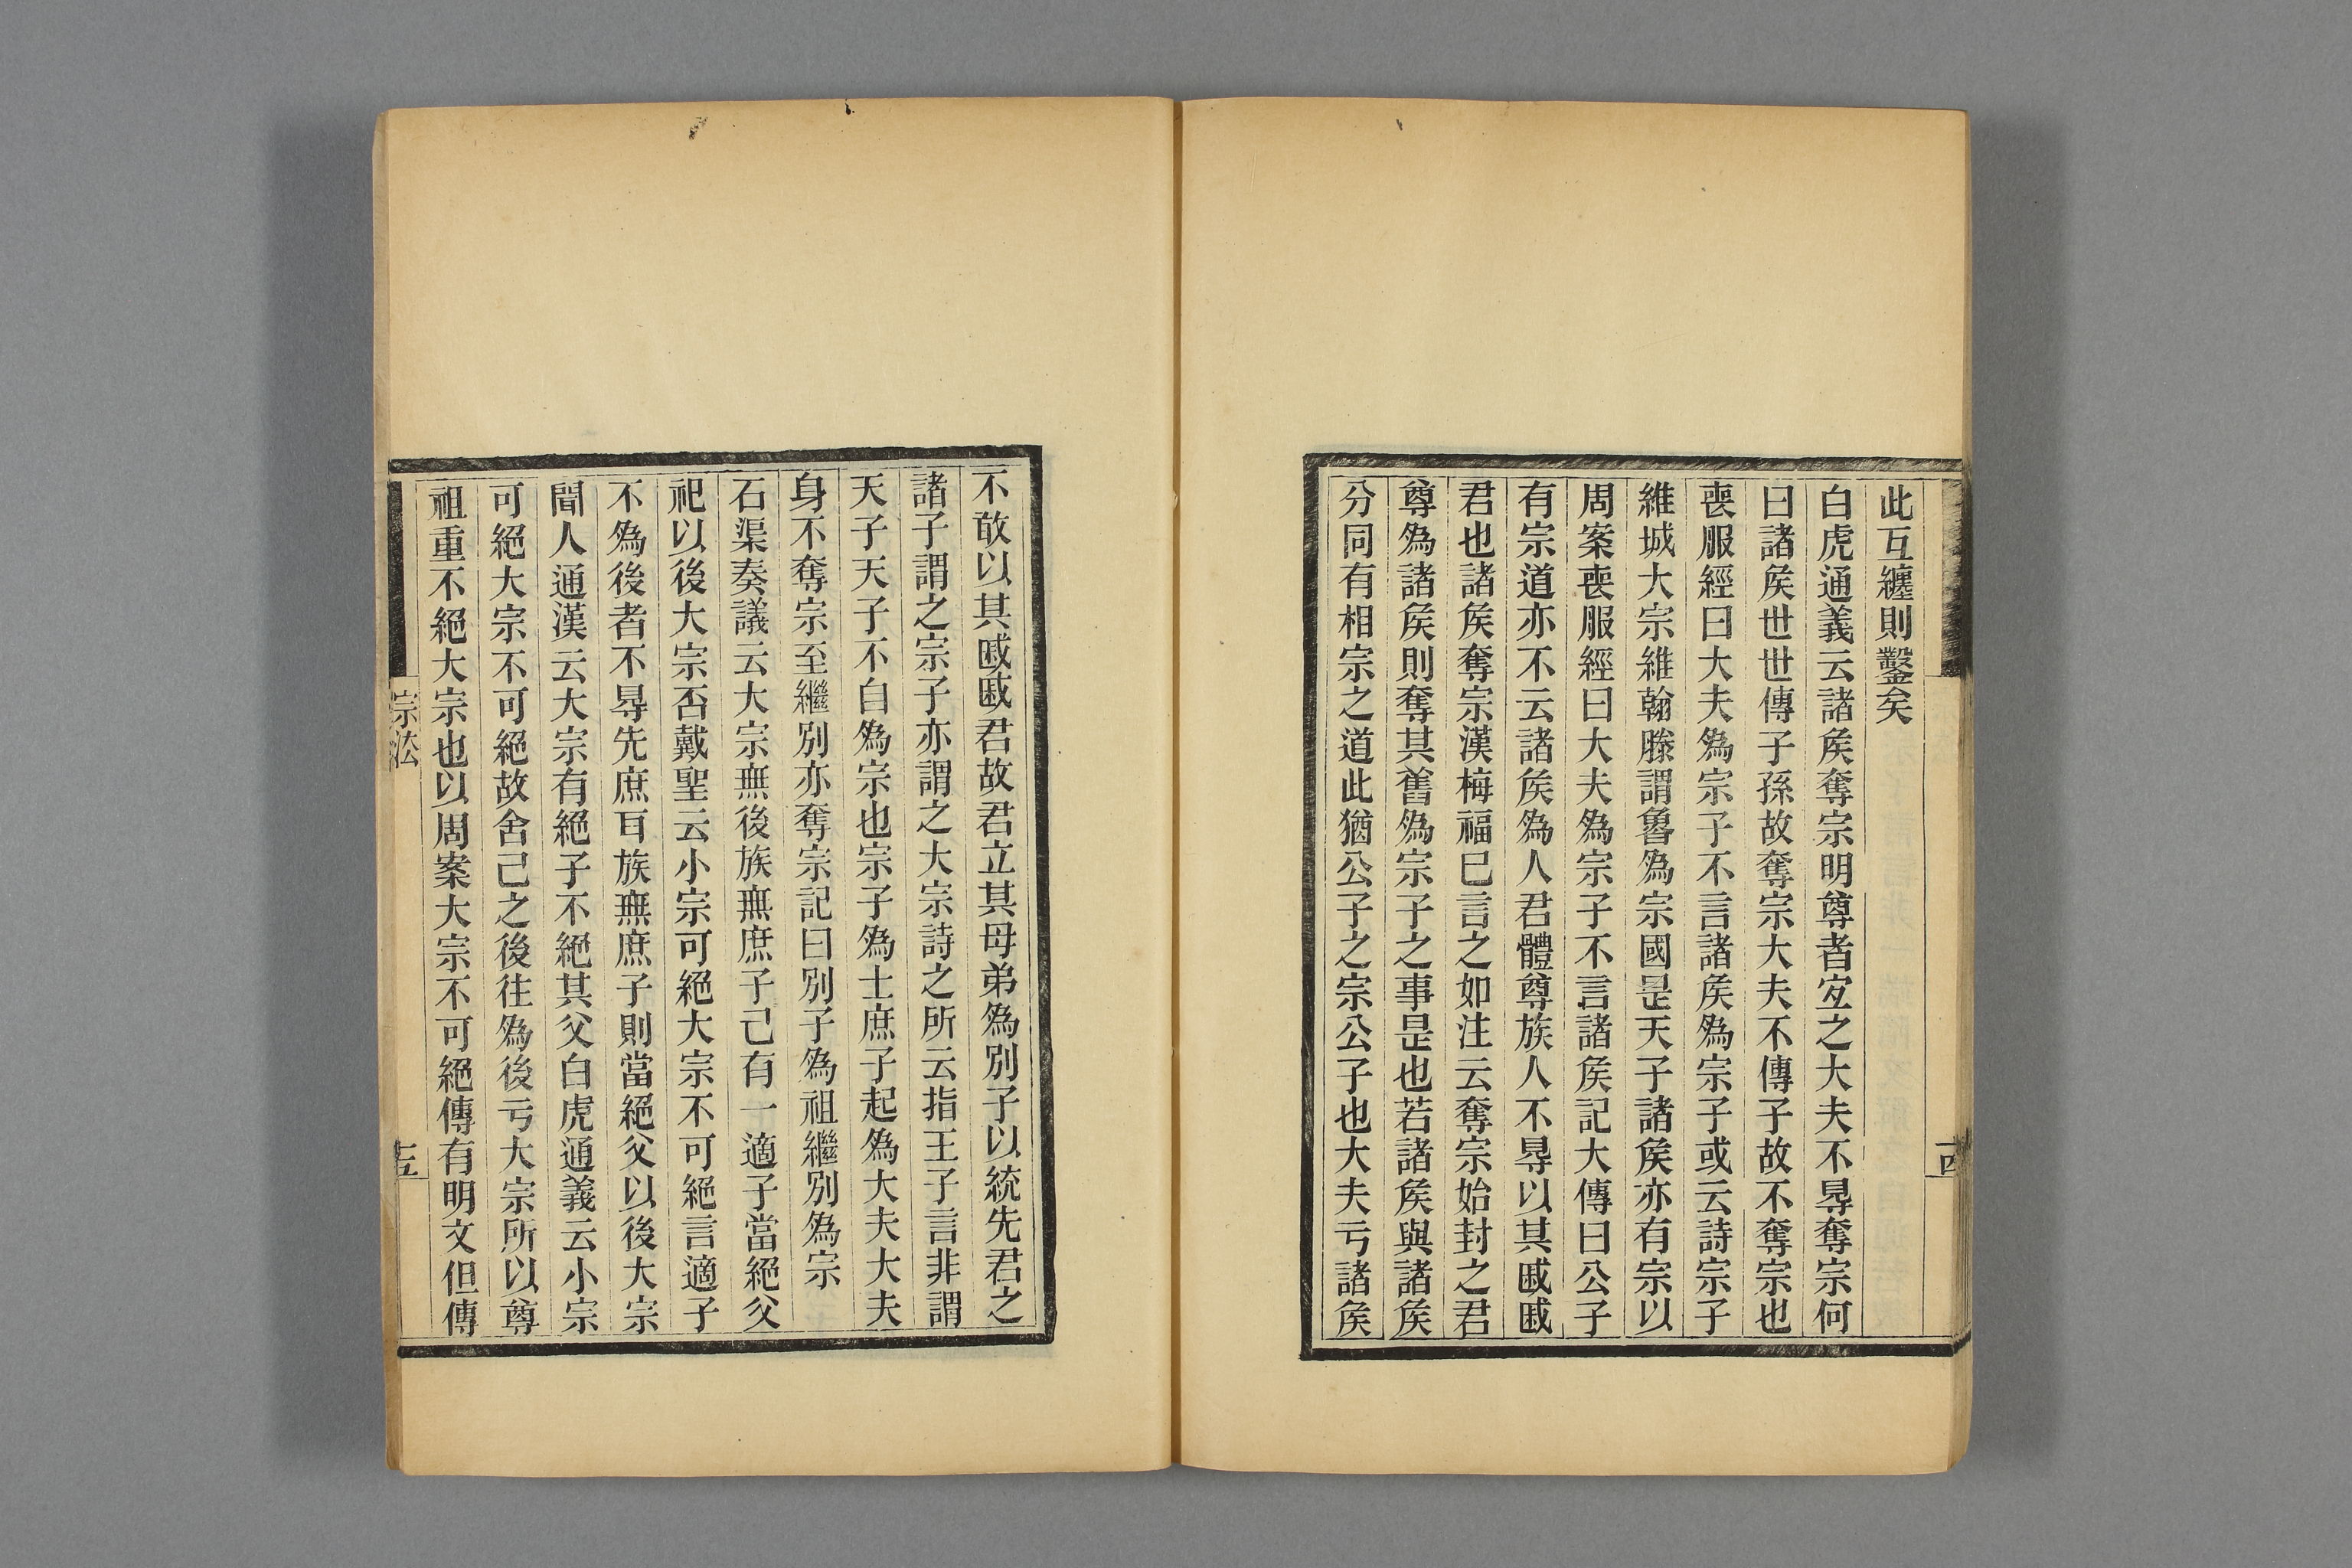 此互纏則鑿矣
白虎通義云諸矦奪宗明尊者宐之大夫不㝵奪宗何
曰諸矦世世傳子孫故奪宗大夫不傳子故不奪宗也
喪服經曰大夫爲宗子不言諸矦爲宗子或云詩宗子
維城大宗維翰滕謂魯爲宗國是天子諸矦亦有宗以
周案喪服經曰大夫爲宗子不言諸矦記大傳曰公子
有宗道亦不云諸矦爲人君體尊族人不㝵以其戚戚
君也諸矦奪宗漢梅福巳言之如注云奪宗始封之君
尊爲諸矦則奪其舊爲宗子之事是也若諸矦與諸矦
分同有相宗之道此猶公子之宗公子也大夫亏諸矦
十四
不敢以其戚戚君故君立其母弟爲別子以統先君之
諸子謂之宗子亦謂之大宗詩之所云指王子言非謂
天子天子不自爲宗也宗子爲士庶子起爲大夫大夫
身不奪宗至繼別亦奪宗記曰別子爲祖繼別爲宗
石渠奏議云大宗無後族無庶子己有一適子當絕父
祀以後大宗否戴聖云小宗可絕大宗不可絕言適子
不爲後者不㝵先庶耳族無庶子則當絕父以後大宗
聞人通漢云大宗有絕子不絕其父白虎通義云小宗
可絕大宗不可絕故舍己之後往爲後亏大宗所以尊
祖重不絕大宗也以周案大宗不可絕傳有明文但傳
宗法
十五